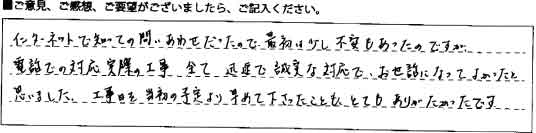 ■ご意見、ご感想、ご要望がございましたら、ご記入ください。
インターネットで知っての問いあわせだったので最初は少し不安もあったのですが、
電話での対応、実際の工事 全て 迅速で誠実な対応で、お世話になってよかったと
思いました。工事日を当初の予定より早めて下さったことも、とてもありがたかったです